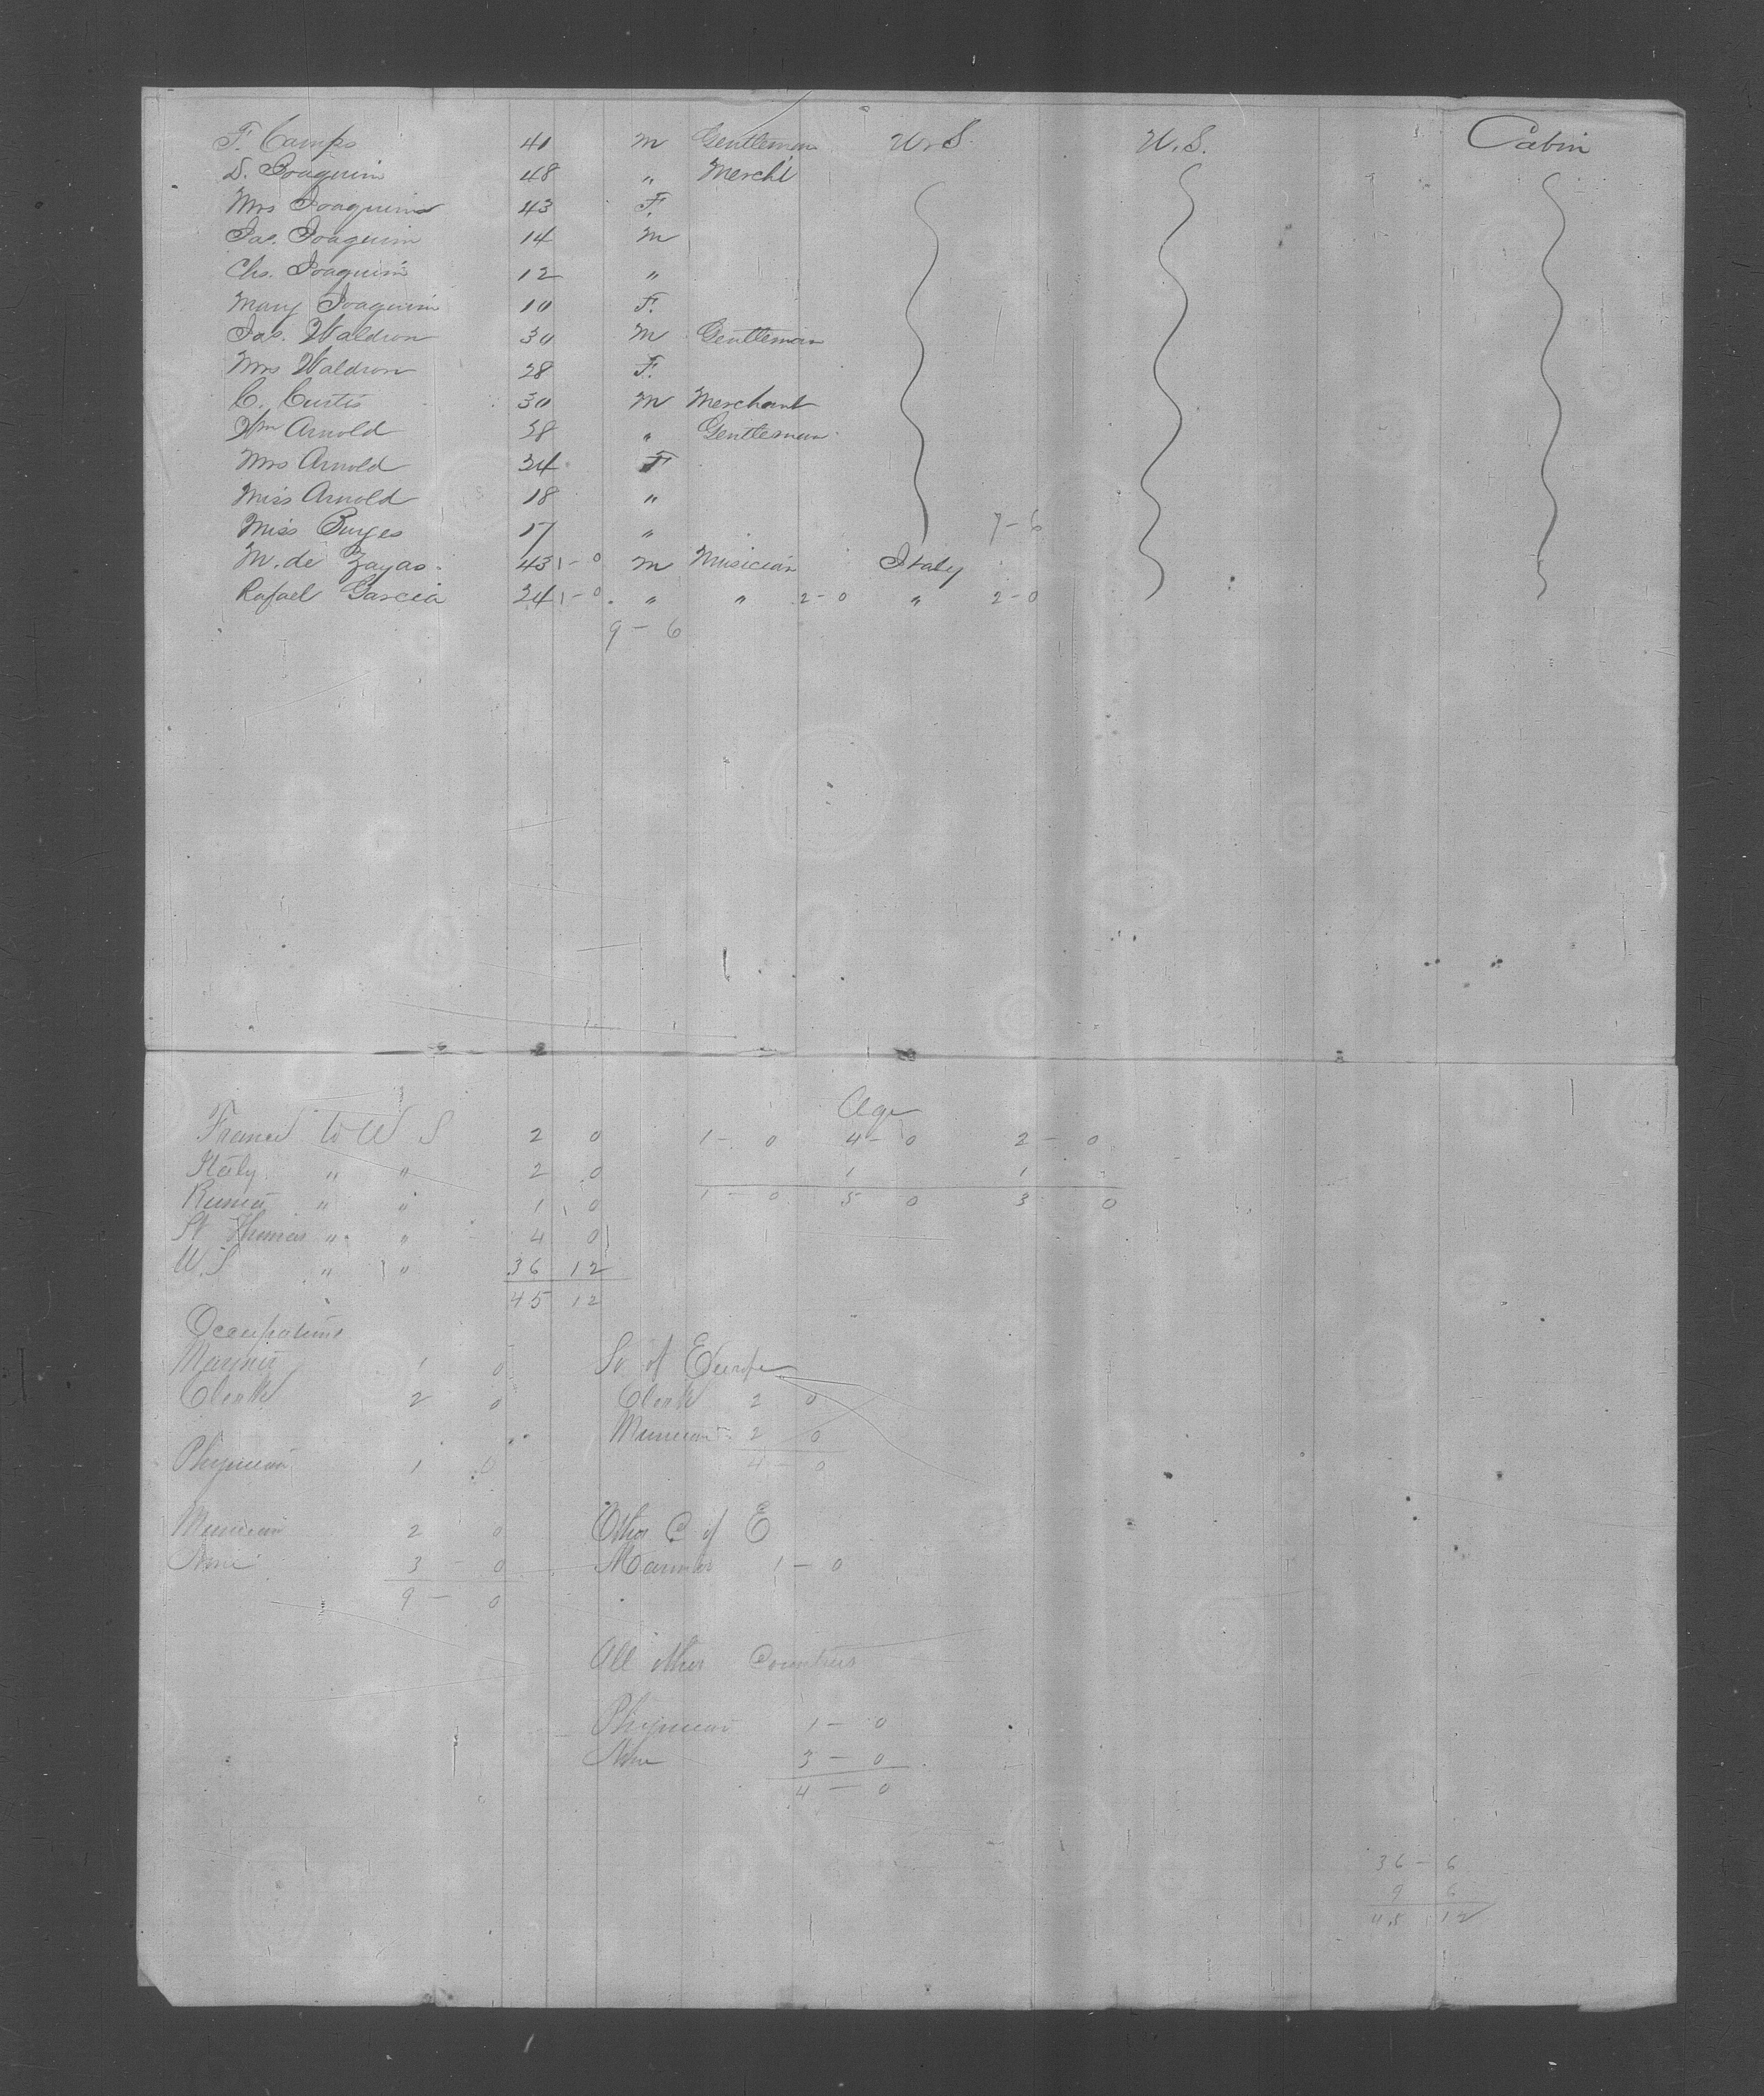 F. Camps 41 M Gentleman U.S. U.S. Cabin
D. Joaquin 48 " Mercht
Mrs Joaquin 43 F.
Jas. Joaquim 14 M
Chs. Joaquim 12 "
Mary Joaquim 10 F.
Jas. Waldron 30 M Gentleman
Mrs Waldron 28 F.
C. Curtis 30 M Merchant
Wm Arnold 38 " Gentleman
Mrs Arnold 34 F
Miss Arnold 18 "
Miss Burges 17 " 7-6
M. de Zayas. 43 1-0 M Musician Italy
Rafael Garcia 34 1-0 " " 2-0 " 2-0
9-6
Age
France to U S 2 0 1-0 4-0 2-0
Italy " " 2 0 1 1
Russia " " 1 0 1-0 5 0 3 0
St Thomas " " 4 0
U.S " " 36 12
45 12
Occupations
Mariner 1 0 So of Europe
Clerk 2 0 Clerk 2 0
Musician 2 0
Physician 1 0 4-0
Musician 2 0 Other C of E
None 3-0 Mariner 1-0
9-0
All other Countries
Physician 1-0
None 3-0
4-0
36-6
9 6
45 12